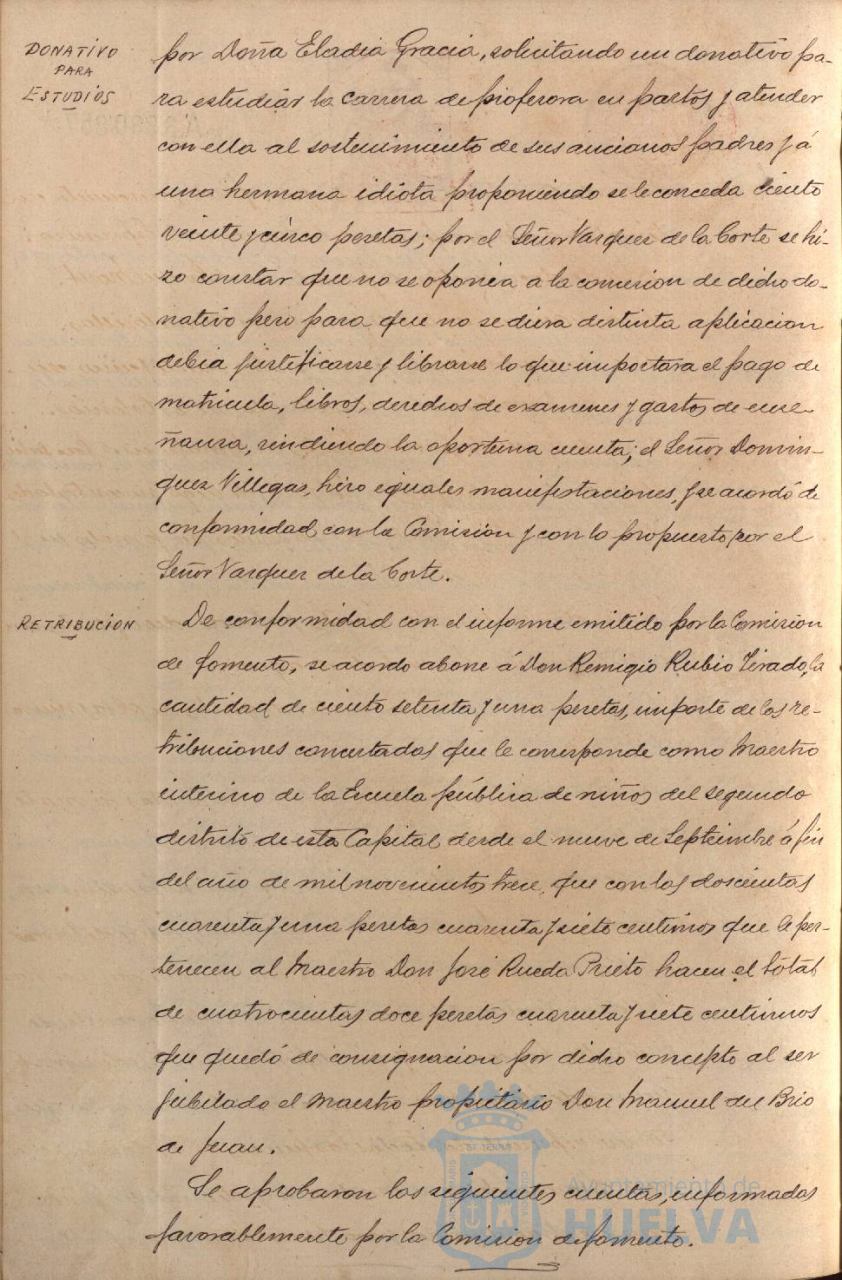 DONATIVO
PARA
ESTUDIOS
por Doña Eladia Gracia, solicitando un donativo pa-
ra estudiar la carrera de profesora en partos y atender
con ella al sostenimiento de sus ancianos padres y á
una hermana idiota proponiendo se le conceda ciento
veinte y cinco pesetas; por el Señor Vazquez de la Corte se hi-
zo constar que no se oponia a la concesion de dicho do-
nativo pero para que no se diera distinta aplicacion
debia justificarse y librarse lo que importara el pago de
matricula, libros, derechos de examenes y gastos de ense-
ñanza, rindiendo la oportuna cuenta; el Señor Domin-
guez Villegas, hizo iguales manifestaciones, y se acordó de
conformidad con la Comisión y con lo propuesto por el
Señor Vazquez de la Corte.
RETRIBUCION
De conformidad con el informe emitido por la Comision
de fomento, se acordo abone á Don Remigio Rubio Tirado, la
cantidad de ciento setenta y una pesetas, importe de las re-
tribuciones concertadas que le corresponde como Maestro
interino de la Escuela pública de niños del segundo
distrito de esta Capital desde el nueve de Septiembre á fin
del año de mil novecientos trece, que con las doscientas
cuarenta y una pesetas cuarenta y siete centimos que le per-
tenecen al Maestro Don José Rueda Prieto hacen el total
de cuatrocientas doce pesetas cuarenta y siete centimos
que quedó de consignacion por dicho concepto al ser
jubilado el Maestro propietario Don Manuel del Brio
de Juan.
Se aprobaron las siguientes cuentas, informadas
favorablemente por la Comision de fomento.
Ayuntamiento de
HUELVA